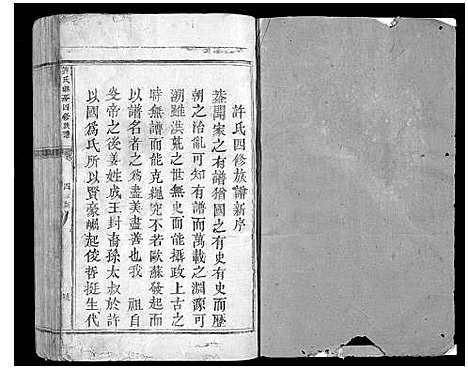 許氏四修族譜新序
蓋聞家之有譜猶國之有史有史而歷
朝之治亂可知有譜而萬載之淵源可
溯雖洪荒之世無史而能攝政上古之
時無譜而能克繩究不若歐蘇發起而
以譜名者之為盡美盡善也我 祖自
炎帝之後姜姓成王封裔孫太叔於許
以國為氏所以賢豪崛起俊哲挺生代
許氏聯 四修族譜